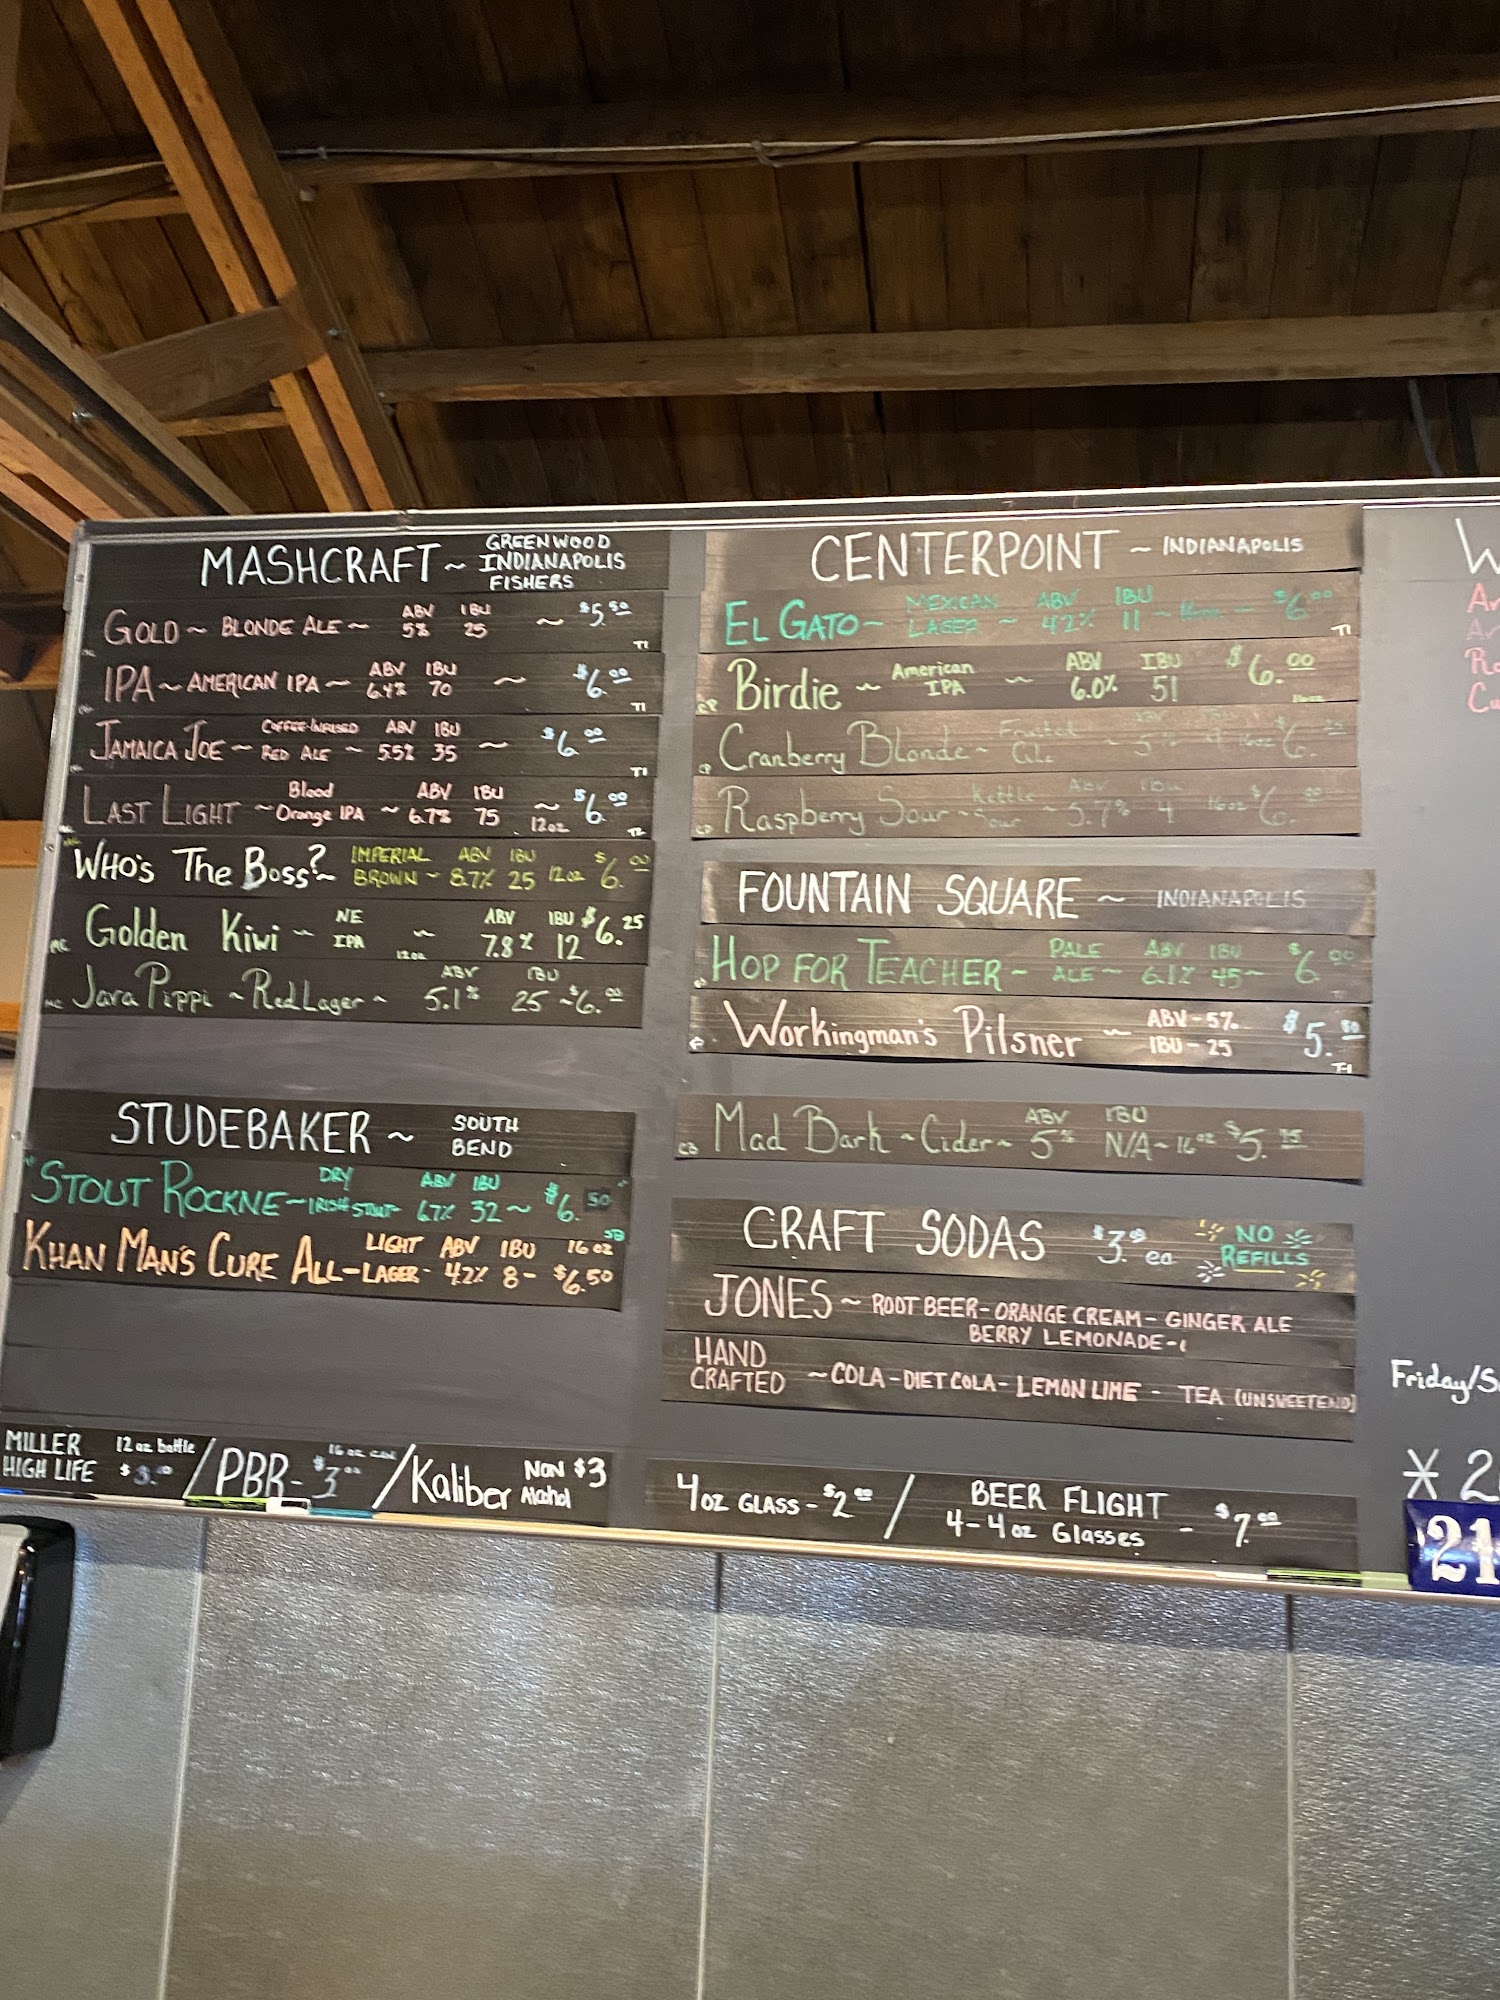 MASHCRAFT ~ GREENWOOD
INDIANAPOLIS
FISHERS
GOLD ~ BLONDE ALE ~ ABV 5% IBU 25 ~ $5.50
T1
IPA ~ AMERICAN IPA ~ ABV 6.4% IBU 70 ~ $6.00
T1
JAMAICA JOE ~ COFFEE-INFUSED RED ALE ~ ABV 5.5% IBU 35 ~ $6.00
T1
LAST LIGHT ~ Blood Orange IPA ~ ABV 6.7% IBU 75 ~ 12oz $6.00
T2
WHO'S THE BOSS? ~ IMPERIAL BROWN ~ ABV 8.7% IBU 25 12oz $6.00
MC Golden Kiwi ~ NE IPA ~ 12oz ABV 7.8% IBU 12 $6.25
MC Jara Pippi ~ Red Lager ~ ABV 5.1% IBU 25 ~ $6.00
STUDEBAKER ~ SOUTH
BEND
STOUT ROCKNE ~ DRY IRISH STOUT ~ ABV 6.7% IBU 32 ~ $6.50
SB
KHAN MAN'S CURE ALL - LIGHT LAGER - ABV 4.2% IBU 8 - 16oz $6.50
MILLER HIGH LIFE 12oz bottle $3.00 / PBR - 16oz can $3.00 / Kaliber NON Alcohol $3
CENTERPOINT ~ INDIANAPOLIS
EL GATO ~ MEXICAN LAGER ~ ABV 4.2% IBU 11 ~ 16oz - $6.00
T1
CP Birdie ~ American IPA ~ ABV 6.0% IBU 51 $6.00
16oz
CP Cranberry Blonde ~ Fruited Ale ~ 5% 9 16oz $6.25
CP Raspberry Sour ~ Kettle Sour ~ ABV 5.7% IBU 4 16oz $6.00
FOUNTAIN SQUARE ~ INDIANAPOLIS
HOP FOR TEACHER ~ PALE ALE ~ ABV 6.1% IBU 45 ~ $6.00
Workingman's Pilsner ~ ABV - 5% IBU - 25 $5.50
T-1
CB Mad Bark ~ Cider ~ ABV 5% IBU N/A ~ 16oz $5.75
CRAFT SODAS $3. ea NO
REFILLS
JONES ~ ROOT BEER - ORANGE CREAM - GINGER ALE
BERRY LEMONADE -
HAND
CRAFTED ~ COLA - DIET COLA - LEMON LIME - TEA (UNSWEETEND)
4oz GLASS - $2.00 / BEER FLIGHT
4-4oz Glasses - $7.00
W
Ar
Ar
Ra
Cu
Friday/S
* 2
21